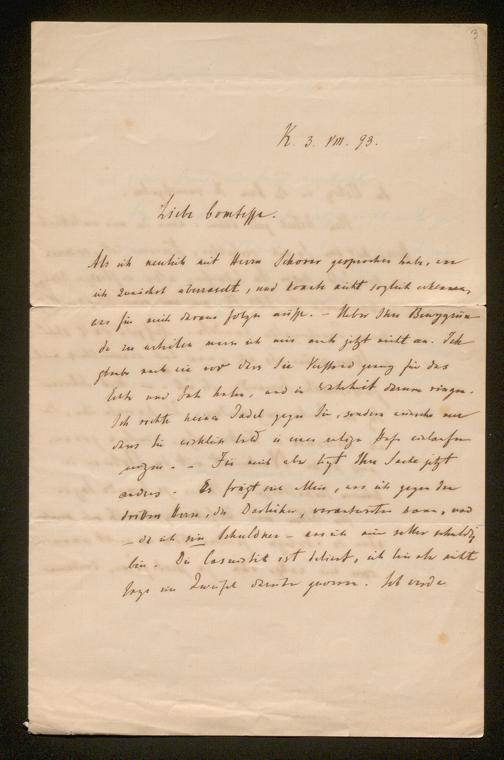 3
K. 3. VIII. 93.
Liebe Comtesse.
Als ich neulich mit Herrn Schorer gesprochen habe, war
ich zunächst überrascht, und konnte nicht sogleich erkennen,
was für mich daraus folgen müsse. – Ueber Ihre Beweggrün-
de zu urtheilen masse ich mir auch jetzt nicht an. Ich
glaube nach wie vor dass Sie Verstand genug für das
Echte und Gute haben, und in Wahrheit darum ringen.
Ich richte keinen Tadel gegen Sie, sondern wünsche nur
dass Sie wirklich bald in einen ruhigen Hafen einlaufen
mögen. – Für mich aber liegt Ihre Sache jetzt
anders. Es frägt sich allein, was ich gegen den
dritten Herrn, den Darleiher, verantworten kann, und
– da ich sein Schuldner – was ich mir selber schuldig
bin. Die Casuistik ist delicat, ich bin aber nicht
lange im Zweifel darüber gewesen. Ich werde